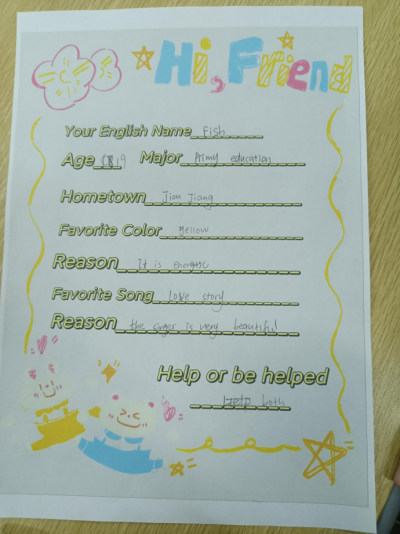 Hi, Friend
Your English Name Fish
Age 19 Major Primy education
Hometown Jiou Jiang
Favorite Color Yellow
Reason It is energtic
Favorite Song Love story
Reason the singer is very beautiful
Help or be helped
both